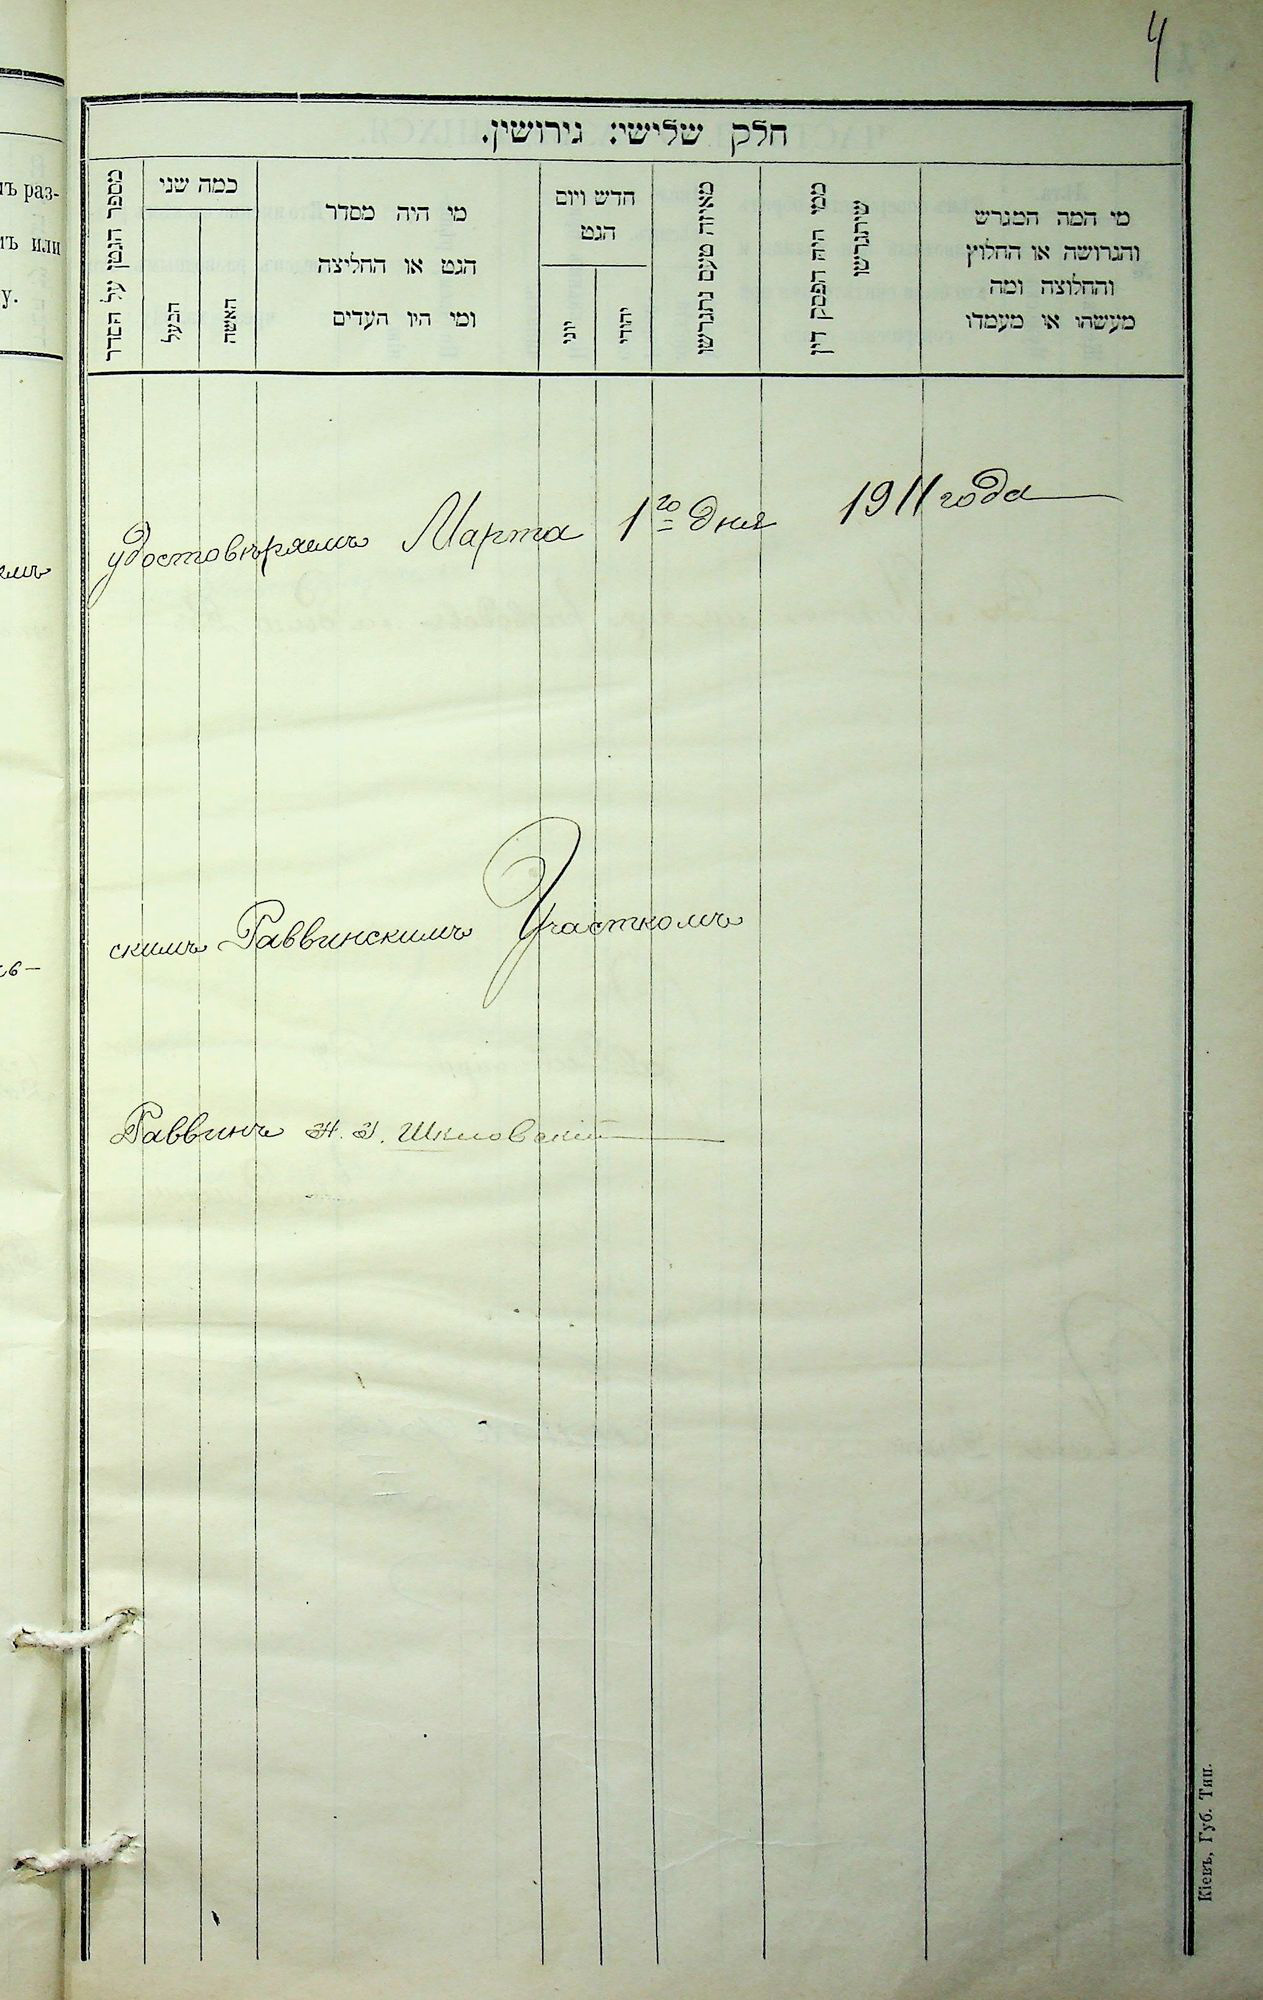 4
חלק שלישי: גירושין.
מספר הגטן על הסדר
כמה שני
הבעל
האשה
מי היה מסדר
הגט או החליצה
ומי היו העדים
חדש ויום
הגט
יוני
יהודי
מאיזה טעם נתגרשו
ממי היה הפסק דין
שיתגרשו
מי המה המגרש
והגרושה או החלוץ
והחלוצה ומה
מעשהו או מעמדו
ъ раз-
ъ или
у.
удостовѣряемъ Марта 1го дня 1911 года
скимъ Раввинскимъ Участкомъ
Раввинъ Шкловскій
Кіевъ, Губ. Тип.